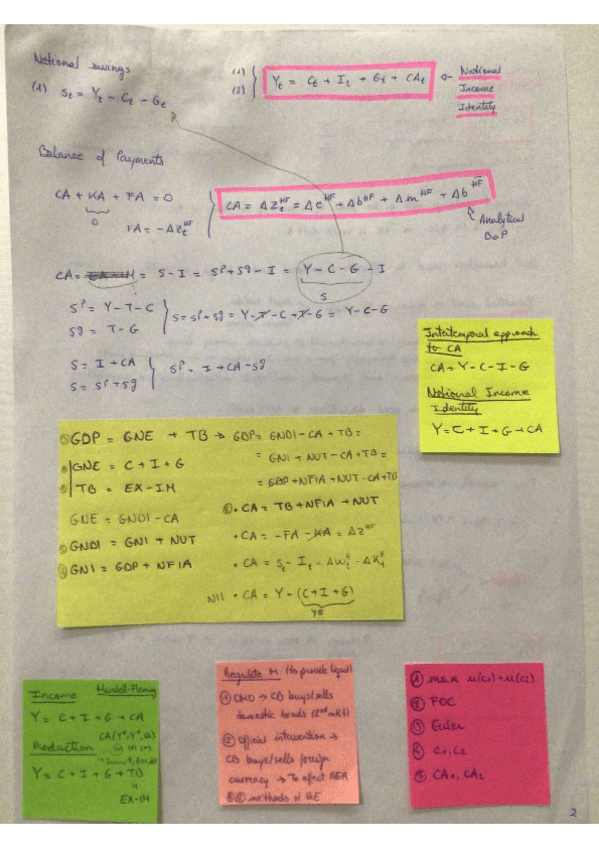 National savings
(1) St = Yt - Ct - Gt
(1)
(2) } Yt = Ct + It + Gt + CAt ← National
Income
Identity
Balance of Payments
CA + KA + FA = 0
0
FA = -ΔZt^HF
CA = ΔZt^HF = Δe^HF + Δb^HF + Δm^HF + Δb^HF
Analytical
BoP
CA = EX-IM = S - I = S^P + S^g - I = Y - C - G - I
S
S^P = Y - T - C
S^g = T - G
S = S^P + S^g = Y - T - C + T - G = Y - C - G
S = I + CA
S = S^P + S^g } S^P = I + CA - S^g
Intertemporal approach
to CA
CA = Y - C - I - G
National Income
Identity
Y = C + I + G + CA
GDP = GNE + TB → GDP = GNDI - CA + TB =
GNE = C + I + G
= GNI + NUT - CA + TB =
TB = EX - IM
= GDP + NFIA + NUT - CA + TB
GNE = GNDI - CA
• CA = TB + NFIA + NUT
GNDI = GNI + NUT
• CA = -FA - KA = ΔZ^HF
GNI = GDP + NFIA
• CA = St - It - ΔWt - ΔKt
NII • CA = Y - (C + I + G)
Income Mundell-Fleming
Y = C + I + G + CA
Production
Y = C + I + G + TB
"
EX-IM
Regulate M (to provide liquid)
① OMO → CB buys/sells
domestic bonds (2nd mkt)
② Official intervention →
CB buys/sells foreign
currency → To affect RER
methods of
① max u(c1) + u(c2)
② FOC
③ Euler
④ C1, C2
⑤ CA1, CA2
2